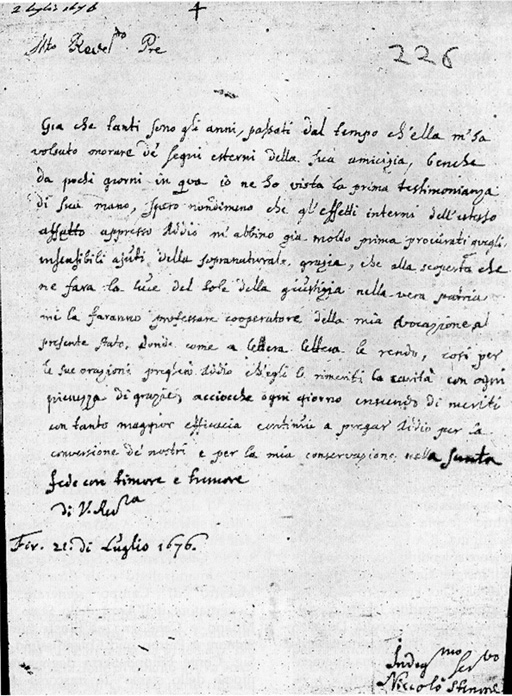 2 luglio 1676
226
Mto Revedo Pre
Gia che tanti sono gli anni, passati dal tempo ch'ella m'ha
volsuto onorare de segni esterni della sua amicizia, benche
da pochi giorni in qua io ne ho vista la prima testimonianza
di sua mano, spero nondimeno che gl'effetti interni dell'istesso
affetto appresso Iddio m'abbino gia molto prima procurati quegli
insensibili ajuti della sopranaturale grazia, che alla scoperta che
ne fara la luce del sole della giustizia nella vera patria
mi la faranno professare cooperatore della mia vocazione al
presente stato, donde come a lettera lettera le rendo, cosi per
le sue orazioni pregherò Iddio ch'egli le rimeriti la carità con ogni
di grazie, acciocche ogni giorno crescendo di meriti
con tanto maggior efficacia continui a pregar Iddio per la
conversione de nostri e per la mia conservazione nella santa
fede con timore e tremore
di V. Revza
Fir. 21. di Luglio 1676.
Indegmo servo
Niccolò Stenone